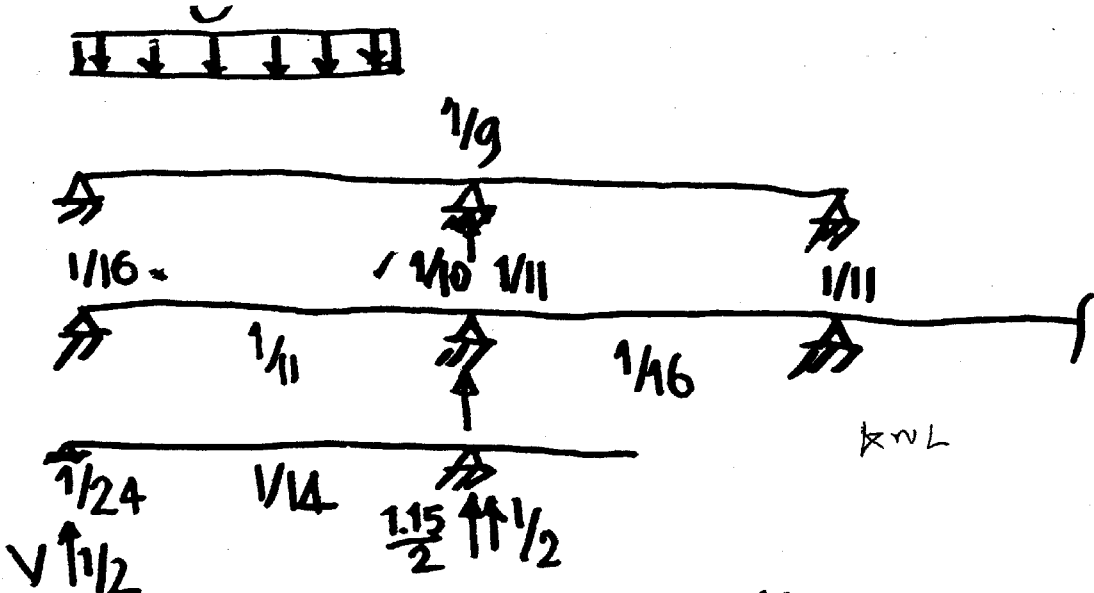 1/9
1/16 1/10 1/11 1/11
1/11 1/16
1/24 1/14 1.15/2 1/2
V 1/2